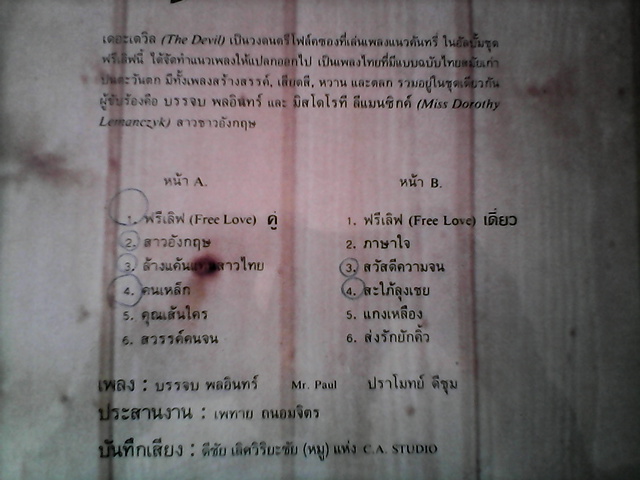 เดอะเดวิล (The Devil) เป็นวงดนตรีโฟล์คซองที่เล่นเพลงแนวคันทรี่ ในอัลบั้มชุด
ฟรีเลิฟนี้ ได้จัดทำแนวเพลงให้แปลกออกไป เป็นเพลงไทยที่มีแบบฉบับไทยสมัยเก่า
ปนตะวันตก มีทั้งเพลงสร้างสรรค์, เสียดสี, หวาน และตลก รวมอยู่ในชุดเดียวกัน
ผู้ขับร้องคือ บรรจบ พลอินทร์ และ มิสโดโรที ลีแมนซิกค์ (Miss Dorothy
Lemanczyk) สาวชาวอังกฤษ
หน้า A.
1. ฟรีเลิฟ (Free Love) คู่
2. สาวอังกฤษ
3. ล้างแค้นแทนสาวไทย
4. คนเหล็ก
5. คุณเส้นใคร
6. สวรรค์คนจน
หน้า B.
1. ฟรีเลิฟ (Free Love) เดี่ยว
2. ภาษาใจ
3. สวัสดีความจน
4. สะใภ้ลุงเชย
5. แกงเหลือง
6. ส่งรักยักคิ้ว
เพลง : บรรจบ พลอินทร์ Mr. Paul ปราโมทย์ ดีชุม
ประสานงาน : เพทาย ถนอมจิตร
บันทึกเสียง : ดีชัย เลิศวิริยะชัย (หมู) แห่ง C.A. STUDIO